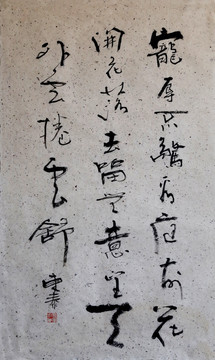 寵辱不驚看庭前花
開花落去留无意望天
外云捲云舒